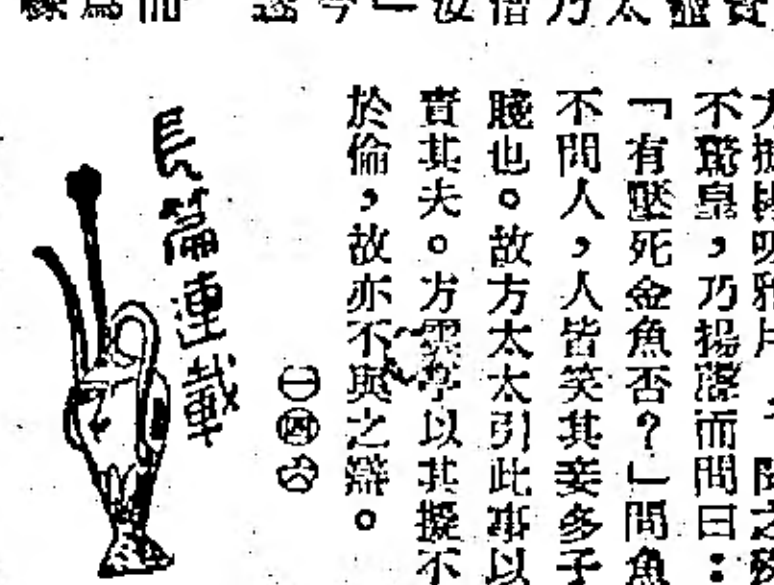 吸雅片，
不驚皇，乃揚聲而問曰：
「有壓死金魚否？」問魚
不問人，人皆笑其妾多子
賤也。故方太太引此事以
責其夫。方雲亭以其擬不
於倫，故亦不與之辯。
一四六
長篇連載